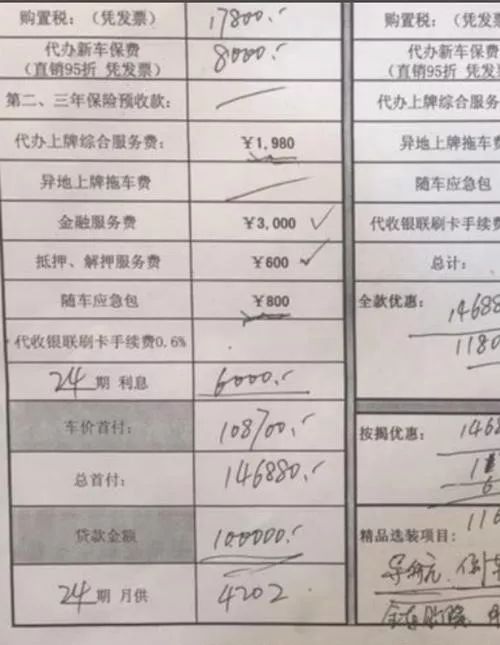 购置税：（凭发票） 17800.-
代办新车保费 8000.-
（直销95折 凭发票）
第二、三年保险预收款：
代办上牌综合服务费： ¥1,980
异地上牌拖车费
金融服务费 ¥3,000
抵押、解押服务费 ¥600
随车应急包 ¥800
代收银联刷卡手续费0.6%
24期 利息 6000.-
车价首付： 108700.-
总首付： 146880.-
贷款金额 100000.-
24期 月供 4202
购置税：（凭发
代办新车保费
（直销95折 凭发
代办上牌综合服务
异地上牌拖车
随车应急包
代收银联刷卡手续费
总计：
全款优惠： 14688
1180
按揭优惠： 1468
6
116
精品选装项目：